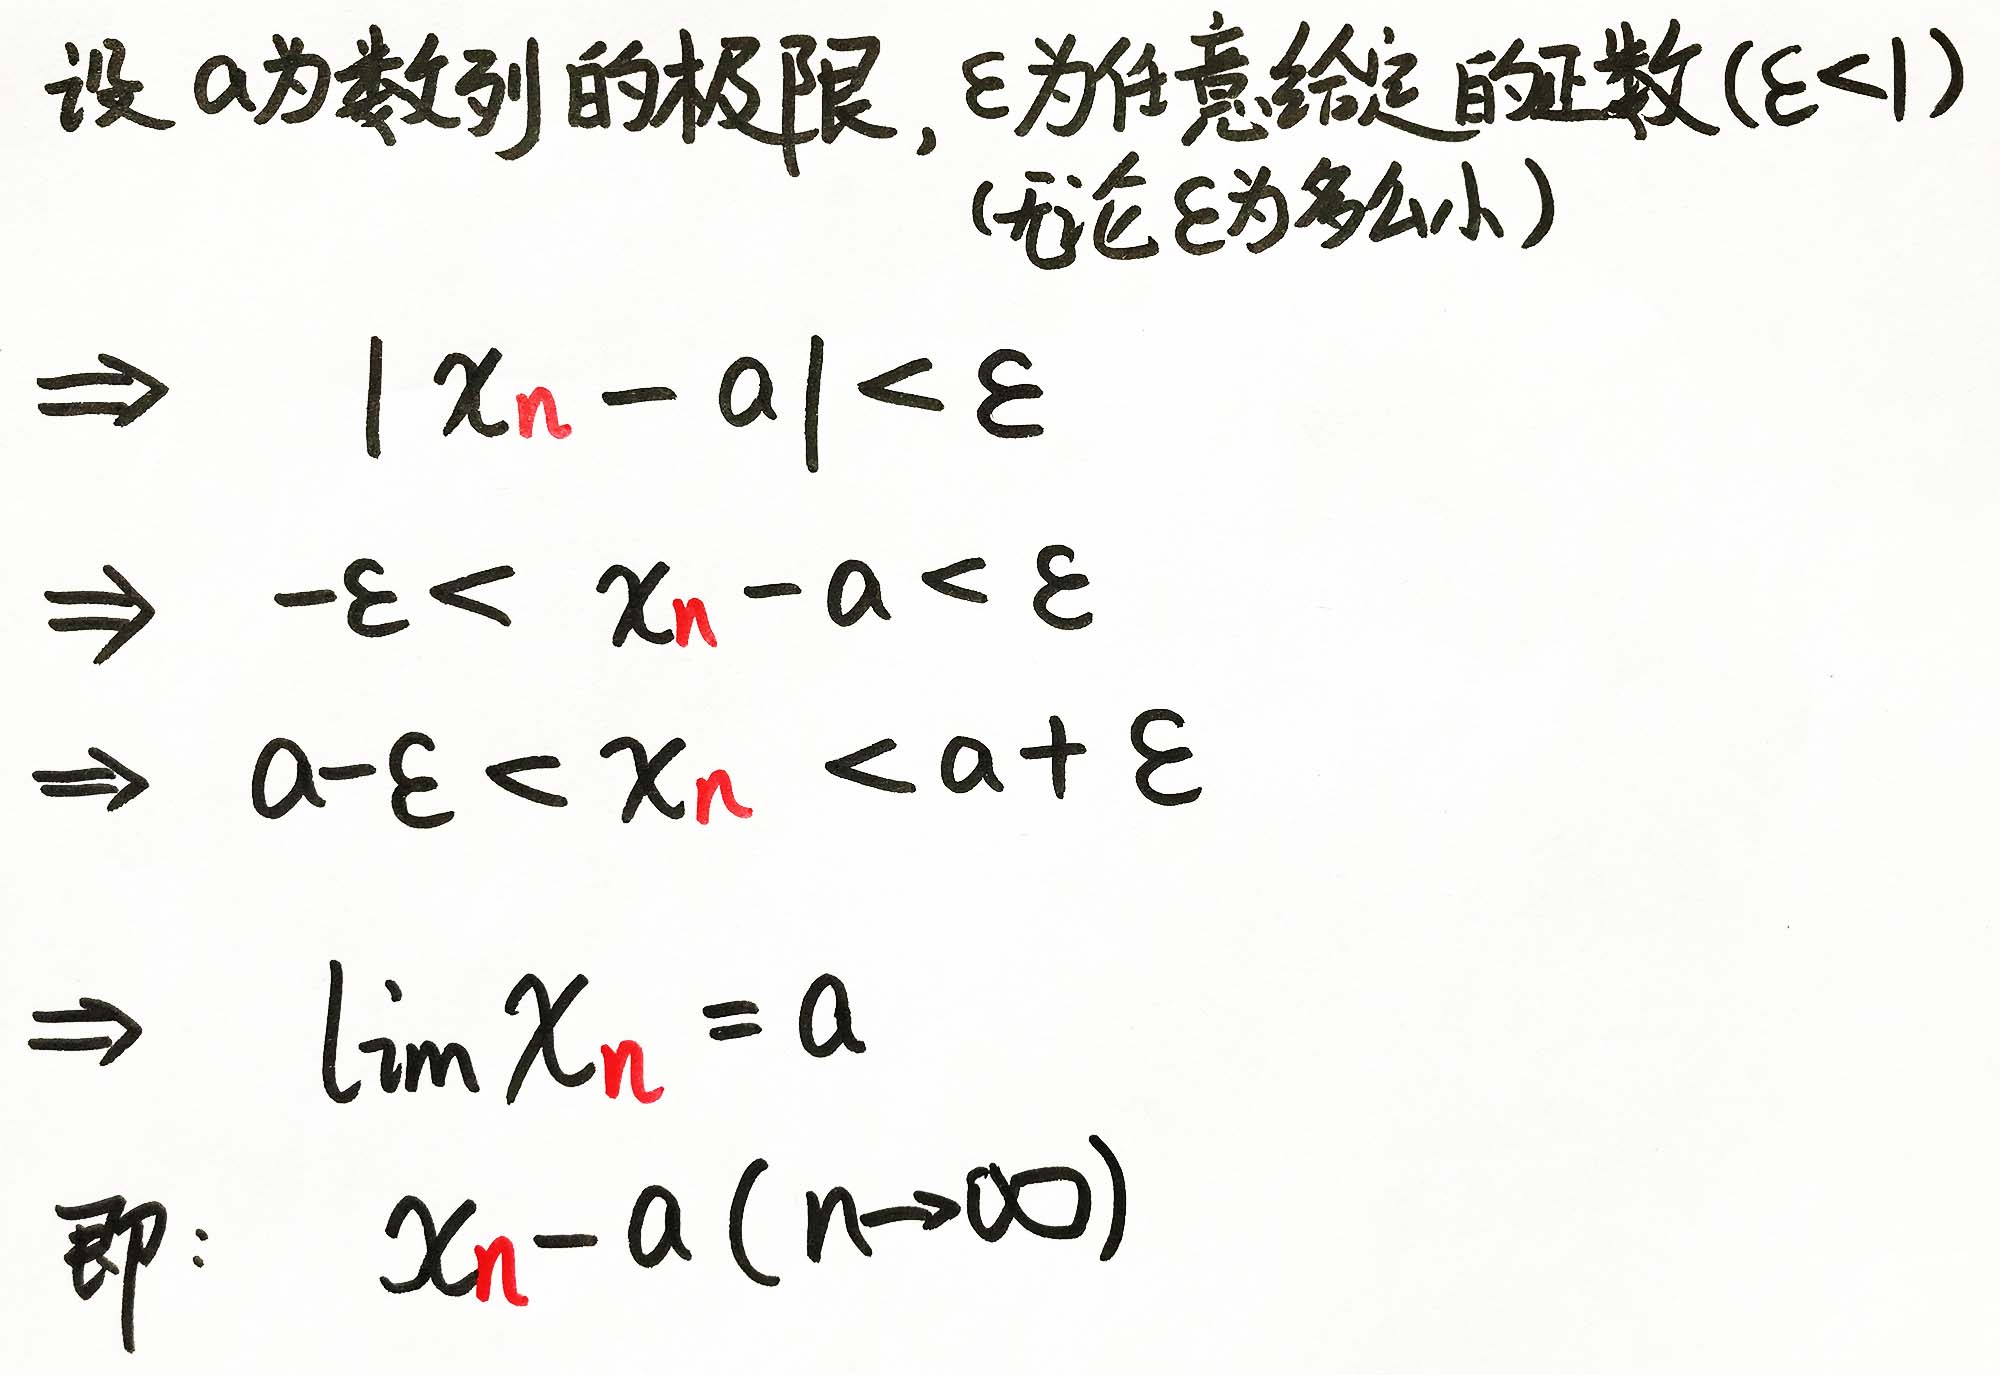 设 a为数列的极限, ε为任意给定的正数(ε<1)
(无论ε为多么小)
⇒ |xₙ - a| < ε
⇒ -ε < xₙ - a < ε
⇒ a-ε < xₙ < a+ε
⇒ lim xₙ = a
即: xₙ - a (n→∞)